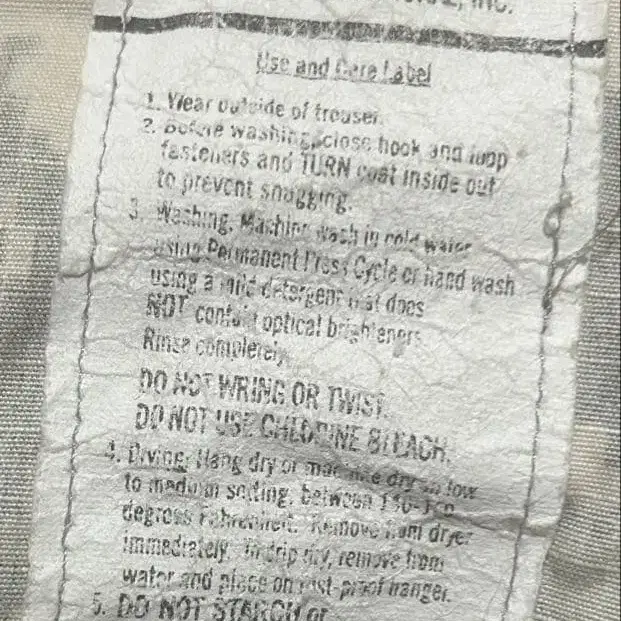 INC.
Use and Care Label
1. Wear outside of trouser.
2. Before washing, close hook and loop
fasteners and TURN coat inside out
to prevent snagging.
3. Washing. Machine wash in cold water
using Permanent Press Cycle or hand wash
using a mild detergent that does
NOT contain optical brighteners.
Rinse completely.
DO NOT WRING OR TWIST.
DO NOT USE CHLORINE BLEACH.
4. Drying. Hang dry or machine dry on low
to medium setting, between
degrees Fahrenheit. Remove from dryer
immediately. To drip dry, remove from
water and place on rust-proof hanger.
5. DO NOT STARCH or